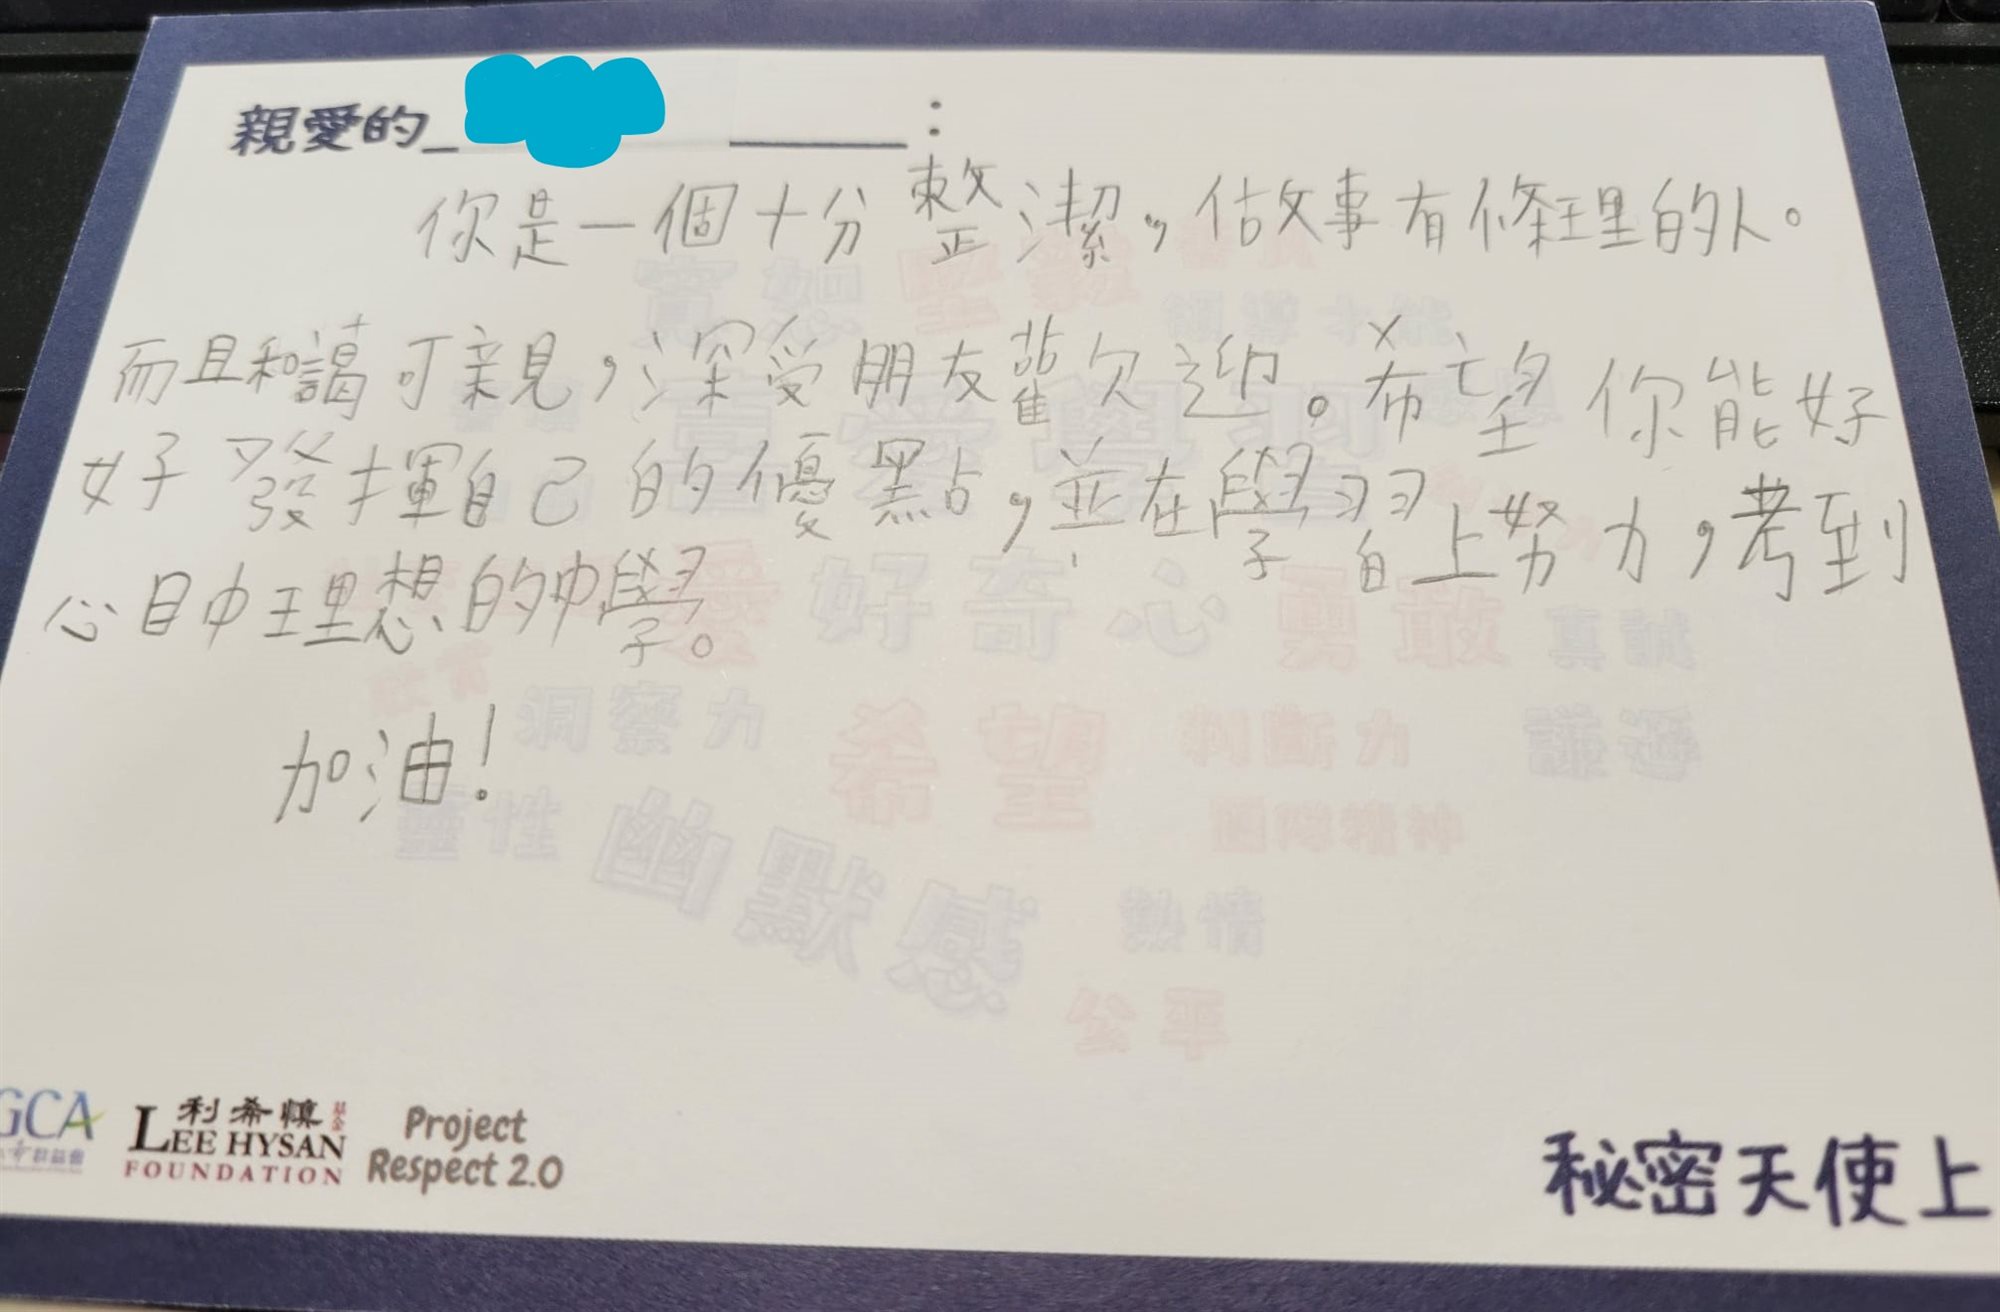 親愛的_ ______：
你是一個十分整潔，做事有條理的人。
而且和譪可親，深受朋友歡迎。希望你能好
好發揮自己的優點，並在學習上努力，考到
心目中理想的中學。
加油！
寬恕 堅毅
領導才能
喜愛學習
愛 好奇心 勇敢 真誠
洞察力 希望 判斷力 謙遜
靈性 幽默感 團隊精神
熱情
公平
GCA
利希慎基金
LEE HYSAN
FOUNDATION
Project
Respect 2.0
秘密天使上